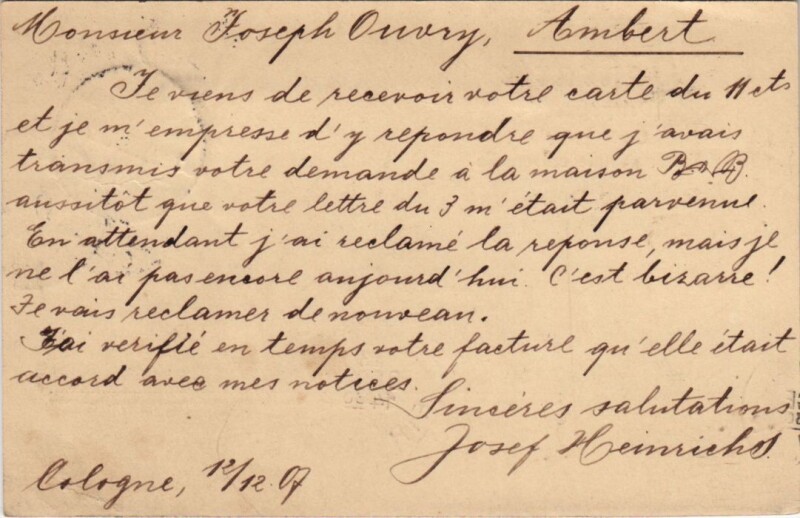 Monsieur Joseph Ouvry, Ambert
Je viens de recevoir votre carte du 11 cts
et je m'empresse d'y repondre que j'avais
transmis votre demande à la maison
aussitôt que votre lettre du 3 m'était parvenue.
En attendant j'ai reclamé la reponse, mais je
ne l'ai pas encore aujourd'hui. C'est bizarre!
Je vais reclamer de nouveau.
J'ai verifié en temps votre facture qu'elle était
accord avec mes notices.
Sincéres salutations
Josef Heinrichs
Cologne, 12/12.07